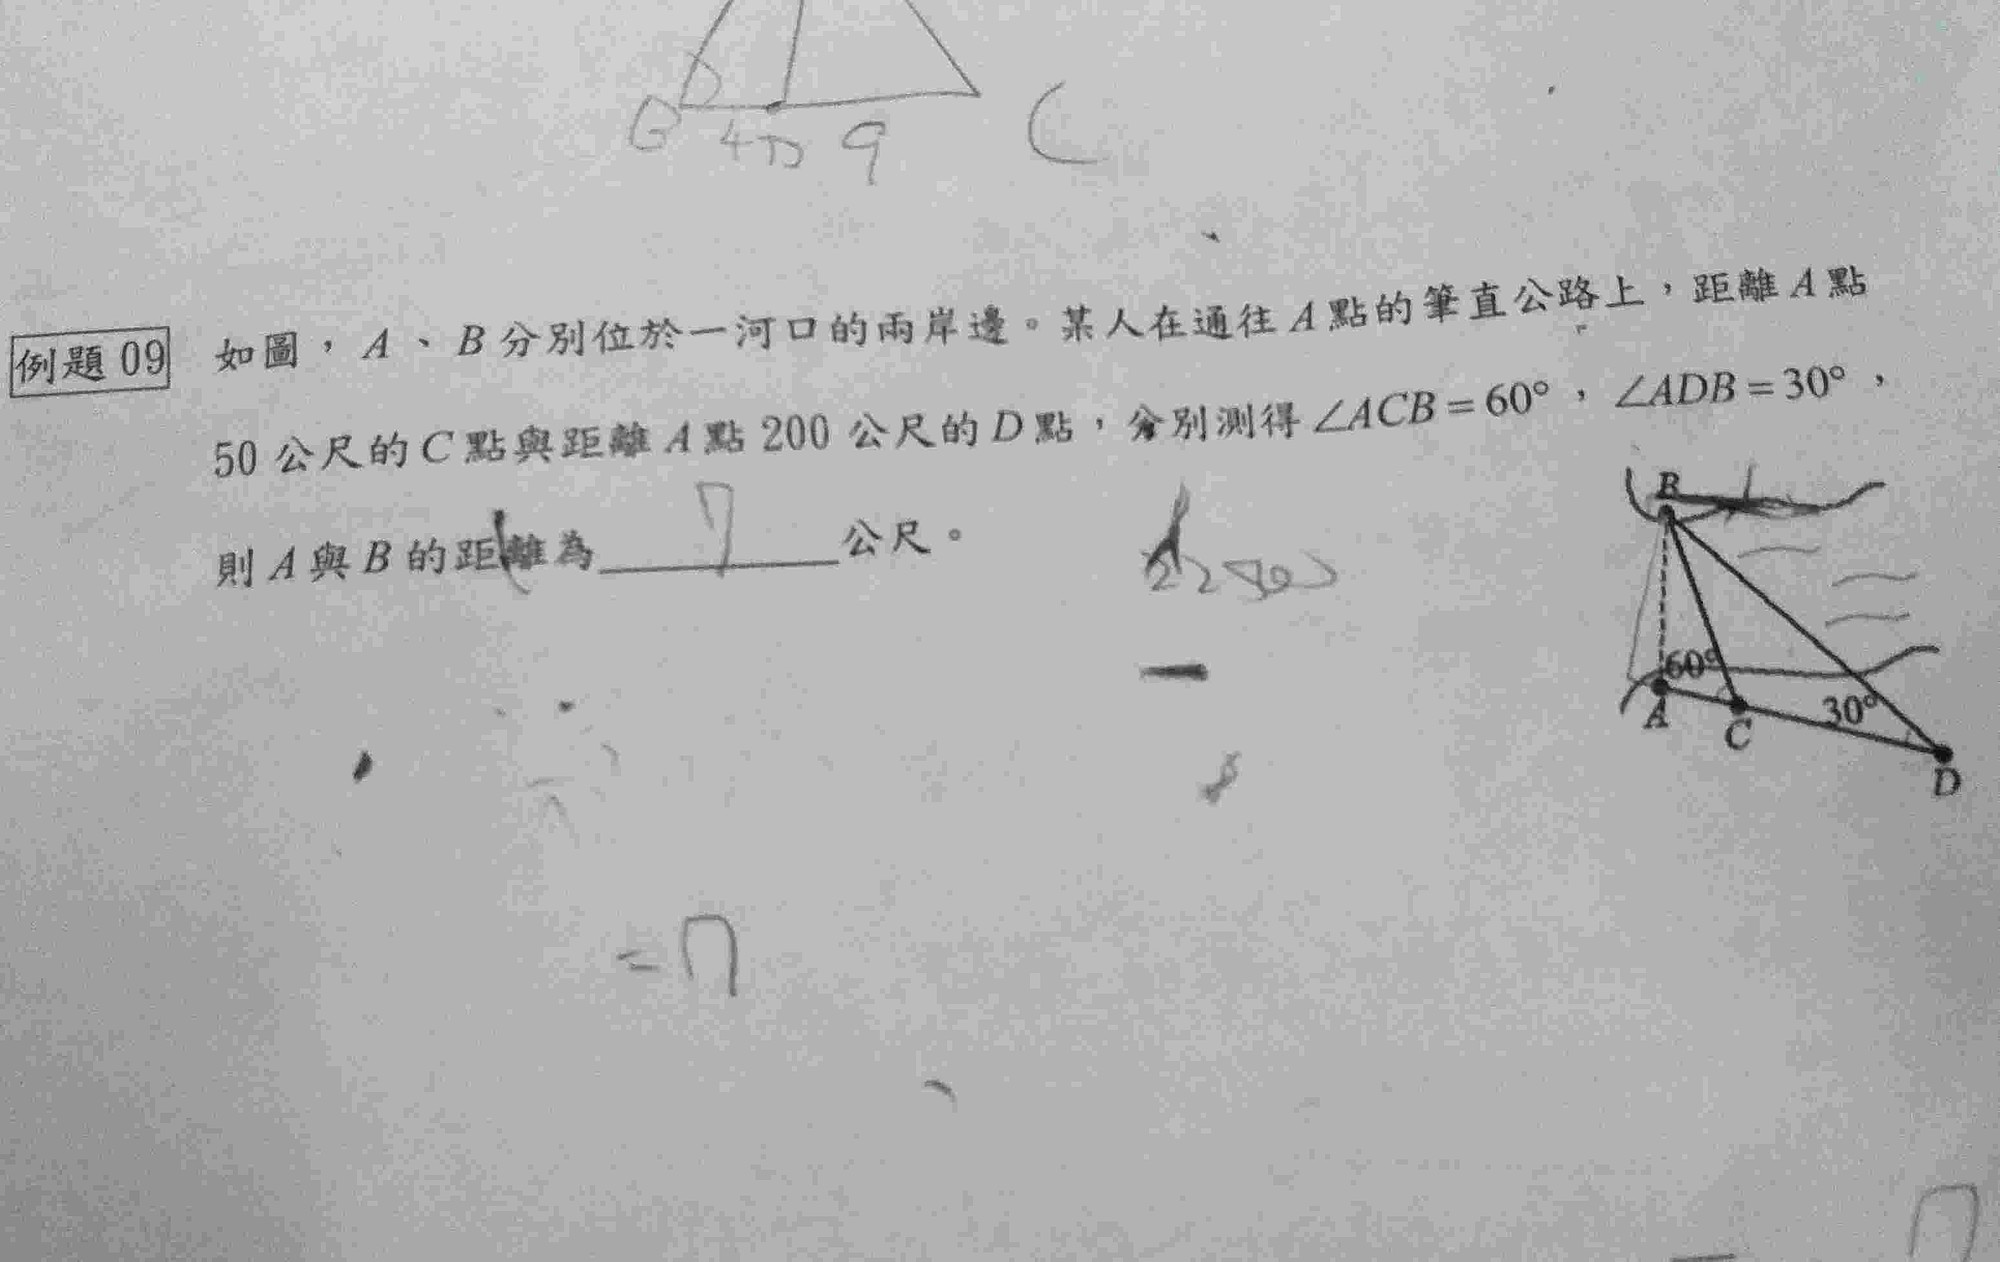 B 4 D 9 C
例題 09 如圖，A、B 分別位於一河口的兩岸邊。某人在通往 A 點的筆直公路上，距離 A 點
50 公尺的 C 點與距離 A 點 200 公尺的 D 點，分別測得 ∠ACB = 60°，∠ADB = 30°，
則 A 與 B 的距離為 7 公尺。
B
60°
A
C
30°
D
= 7